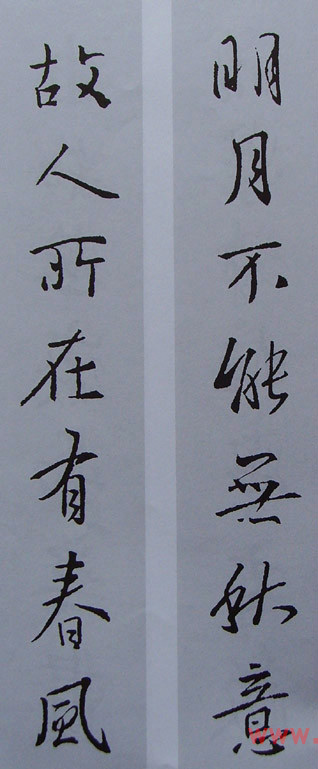 明月不能無秋意
故人所在有春風
www.